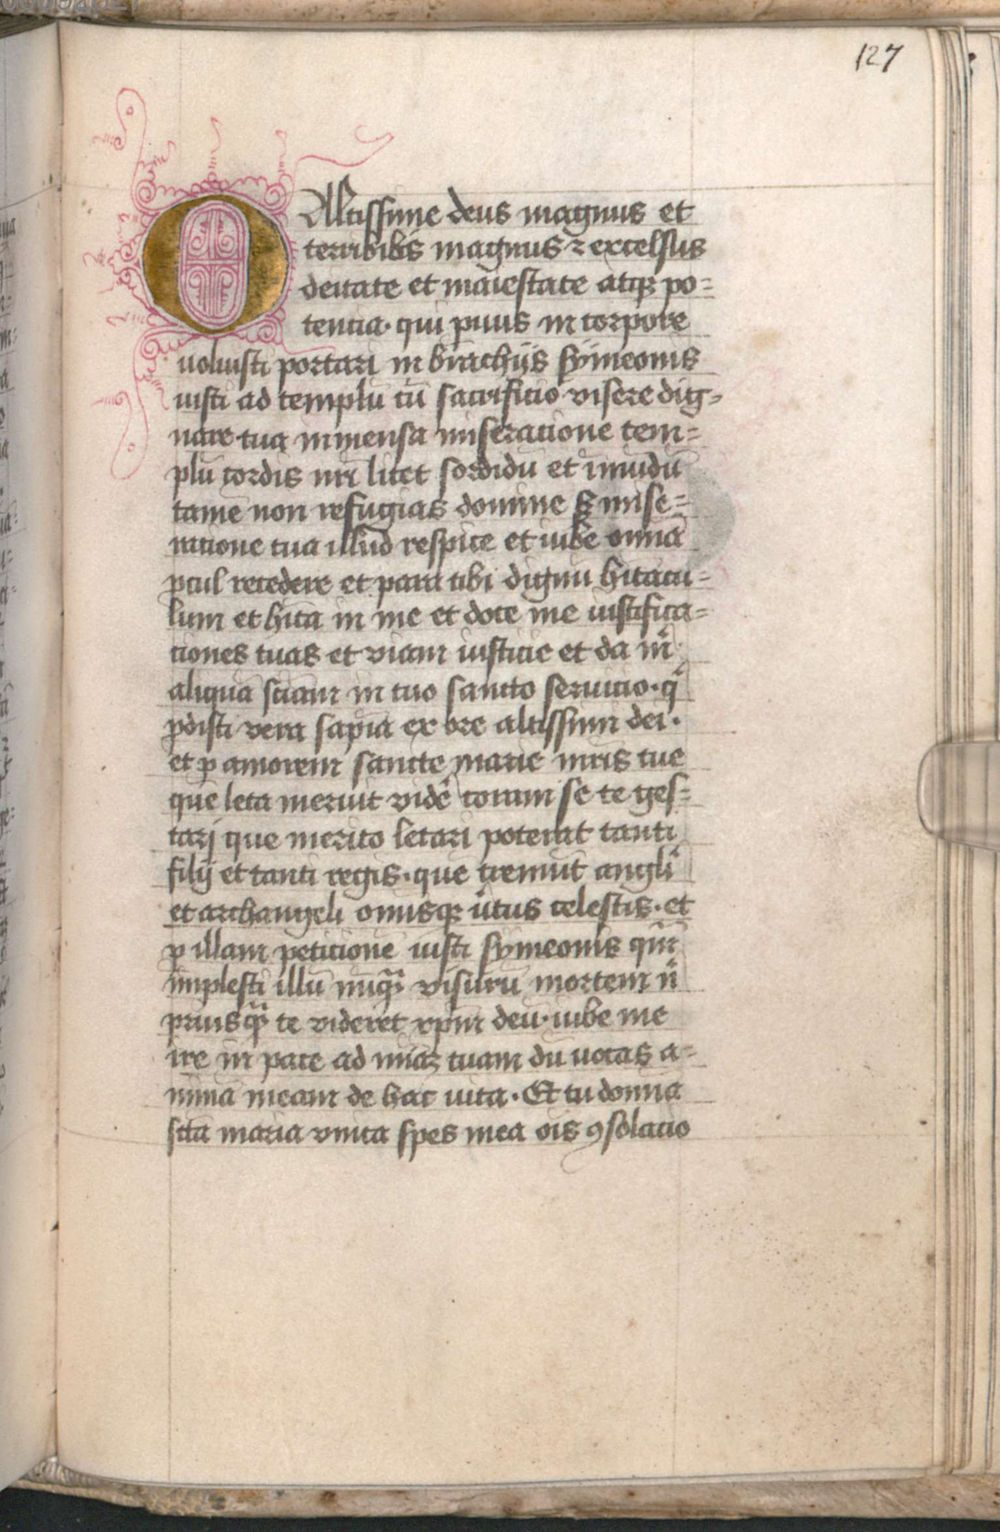 127
O Altissime deus magnus et
terribilis magnus ⁊ excelsus
deitate et maiestate atqꝫ po=
tencia· qui pius in corpore
uoluisti portari in brachijs symeonis
iusti ad templū cū sacrificio visere dig=
nare tua inmensa miseracione tem=
plū cordis nr̄i licet sordidū et īmūdū
tamē non refugias domine s; mise=
racione tua illud respice et iube omīa
ꝓcul recedere et para tibi dignū hītacu=
lum et hīta in me et doce me iustifica=
ciones tuas et viam iusticie et da m̄
aliquā sciam in tuo sancto seruicio· q̄
ꝓdisti vera sapīa ex ore altissimi dei·
et ꝑ amorem sancte marie mr̄is tue
que leta meruit vidē coram se te ges=
tarj que merito letari poterat tanti
filij et tanti regis· que tremūt angl̄i
et archangeli omīsqꝫ ūtus celestis· et
ꝑ illam peticionē iusti symeonis qm̄
implesti illū nūqͣ visurū mortem n̄
priusqͣ te videret xpm̄ deū· iube me
ire in pace ad mīaꝫ tuam dū uocas a=
nimā meam de hac uita· Et tu domīa
sc̄ta maria vnica spes mea oīs ꝯsolacio